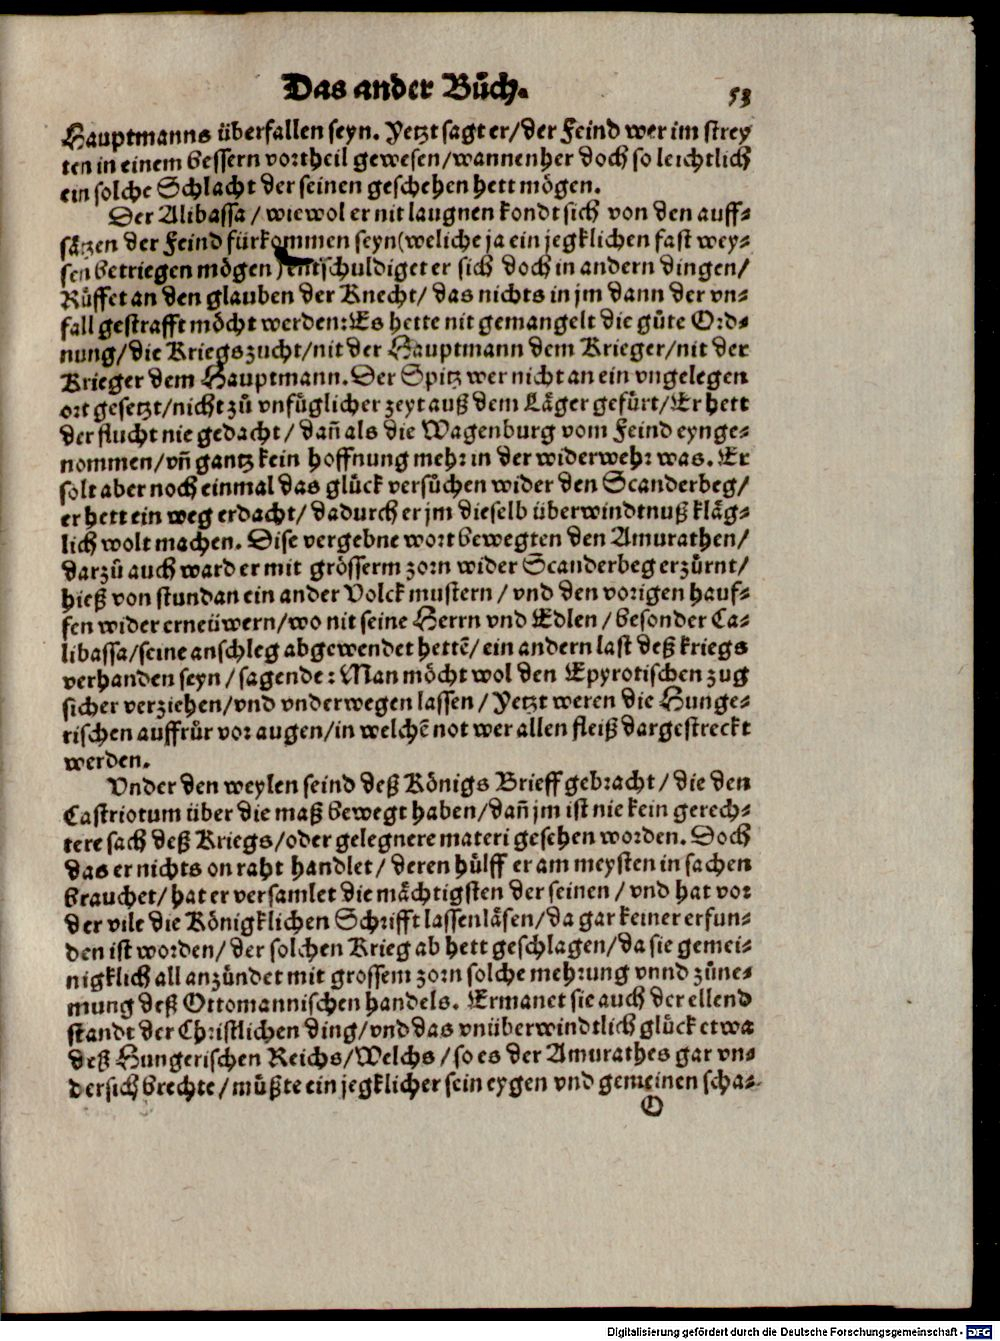 Das ander Bůch.
53
Hauptmanns überfallen seyn. Yetzt sagt er/der Feind wer im strey
ten in einem bessern vortheil gewesen/wannenher doch so leichtlich
ein solche Schlacht der seinen geschehen hett mögen.
Der Alibassa/wiewol er nit laugnen kondt sich von den auff⸗
sätzen der Feind fürkommen seyn(weliche ja ein jegklichen fast wey⸗
sen betriegen mögen) entschuldiget er sich doch in andern dingen/
Růffet an den glauben der Knecht/das nichts in jm dann der vn⸗
fall gestrafft möcht werden:Es hette nit gemangelt die gůte Ord⸗
nung/die Kriegszucht/nit der Hauptmann dem Krieger/nit der
Krieger dem Hauptmann. Der Spitz wer nicht an ein vngelegen
ort gesetzt/nicht zů vnfůglicher zeyt auß dem Läger gefürt/Er hett
der flucht nie gedacht/dañ als die Wagenburg vom Feind eynge⸗
nommen/vñ gantz kein hoffnung mehr in der widerwehr was. Er
solt aber noch einmal das glück versůchen wider den Scanderbeg/
er hett ein weg erdacht/dadurch er jm dieselb überwindtnuß kläg⸗
lich wolt machen. Dise vergebne wort bewegten den Amurathen/
darzů auch ward er mit grösserm zorn wider Scanderbeg erzürnt/
hieß von stundan ein ander Volck mustern/vnd den vorigen hauf⸗
fen wider erneüwern/wo nit seine Herrn vnd Edlen/besonder Ca⸗
libassa/seine anschleg abgewendet hettē/ein andern last deß kriegs
verhanden seyn/sagende: Man möcht wol den Epyrotischen zug
sicher verziehen/vnd vnderwegen lassen/Yetzt weren die Hunge⸗
rischen auffrůr vor augen/in welchē not wer allen fleiß dargestreckt
werden.
Vnder den weylen seind deß Königs Brieff gebracht/die den
Castriotum über die maß bewegt haben/dañ jm ist nie kein gerech⸗
tere sach deß Kriegs/oder gelegnere materi gesehen worden. Doch
das er nichts on raht handlet/deren hülff er am meysten in sachen
brauchet/hat er versamlet die mächtigsten der seinen/vnd hat vor
der vile die Königklichen Schrifft lassen läsen/da gar keiner erfun⸗
den ist worden/der solchen Krieg ab hett geschlagen/da sie gemei⸗
nigklich all anzündet mit grossem zorn solche mehrung vnnd zůne⸗
mung deß Ottomannischen handels. Ermanet sie auch der ellend
standt der Christlichen ding/vnd das vnüberwindtlich glück etwa
deß Hungerischen Reichs/Welchs/so es der Amurathes gar vn⸗
dersich brechte/müßte ein jegklicher sein eygen vnd gemeinen scha⸗
O
Digitalisierung gefördert durch die Deutsche Forschungsgemeinschaft - DFG